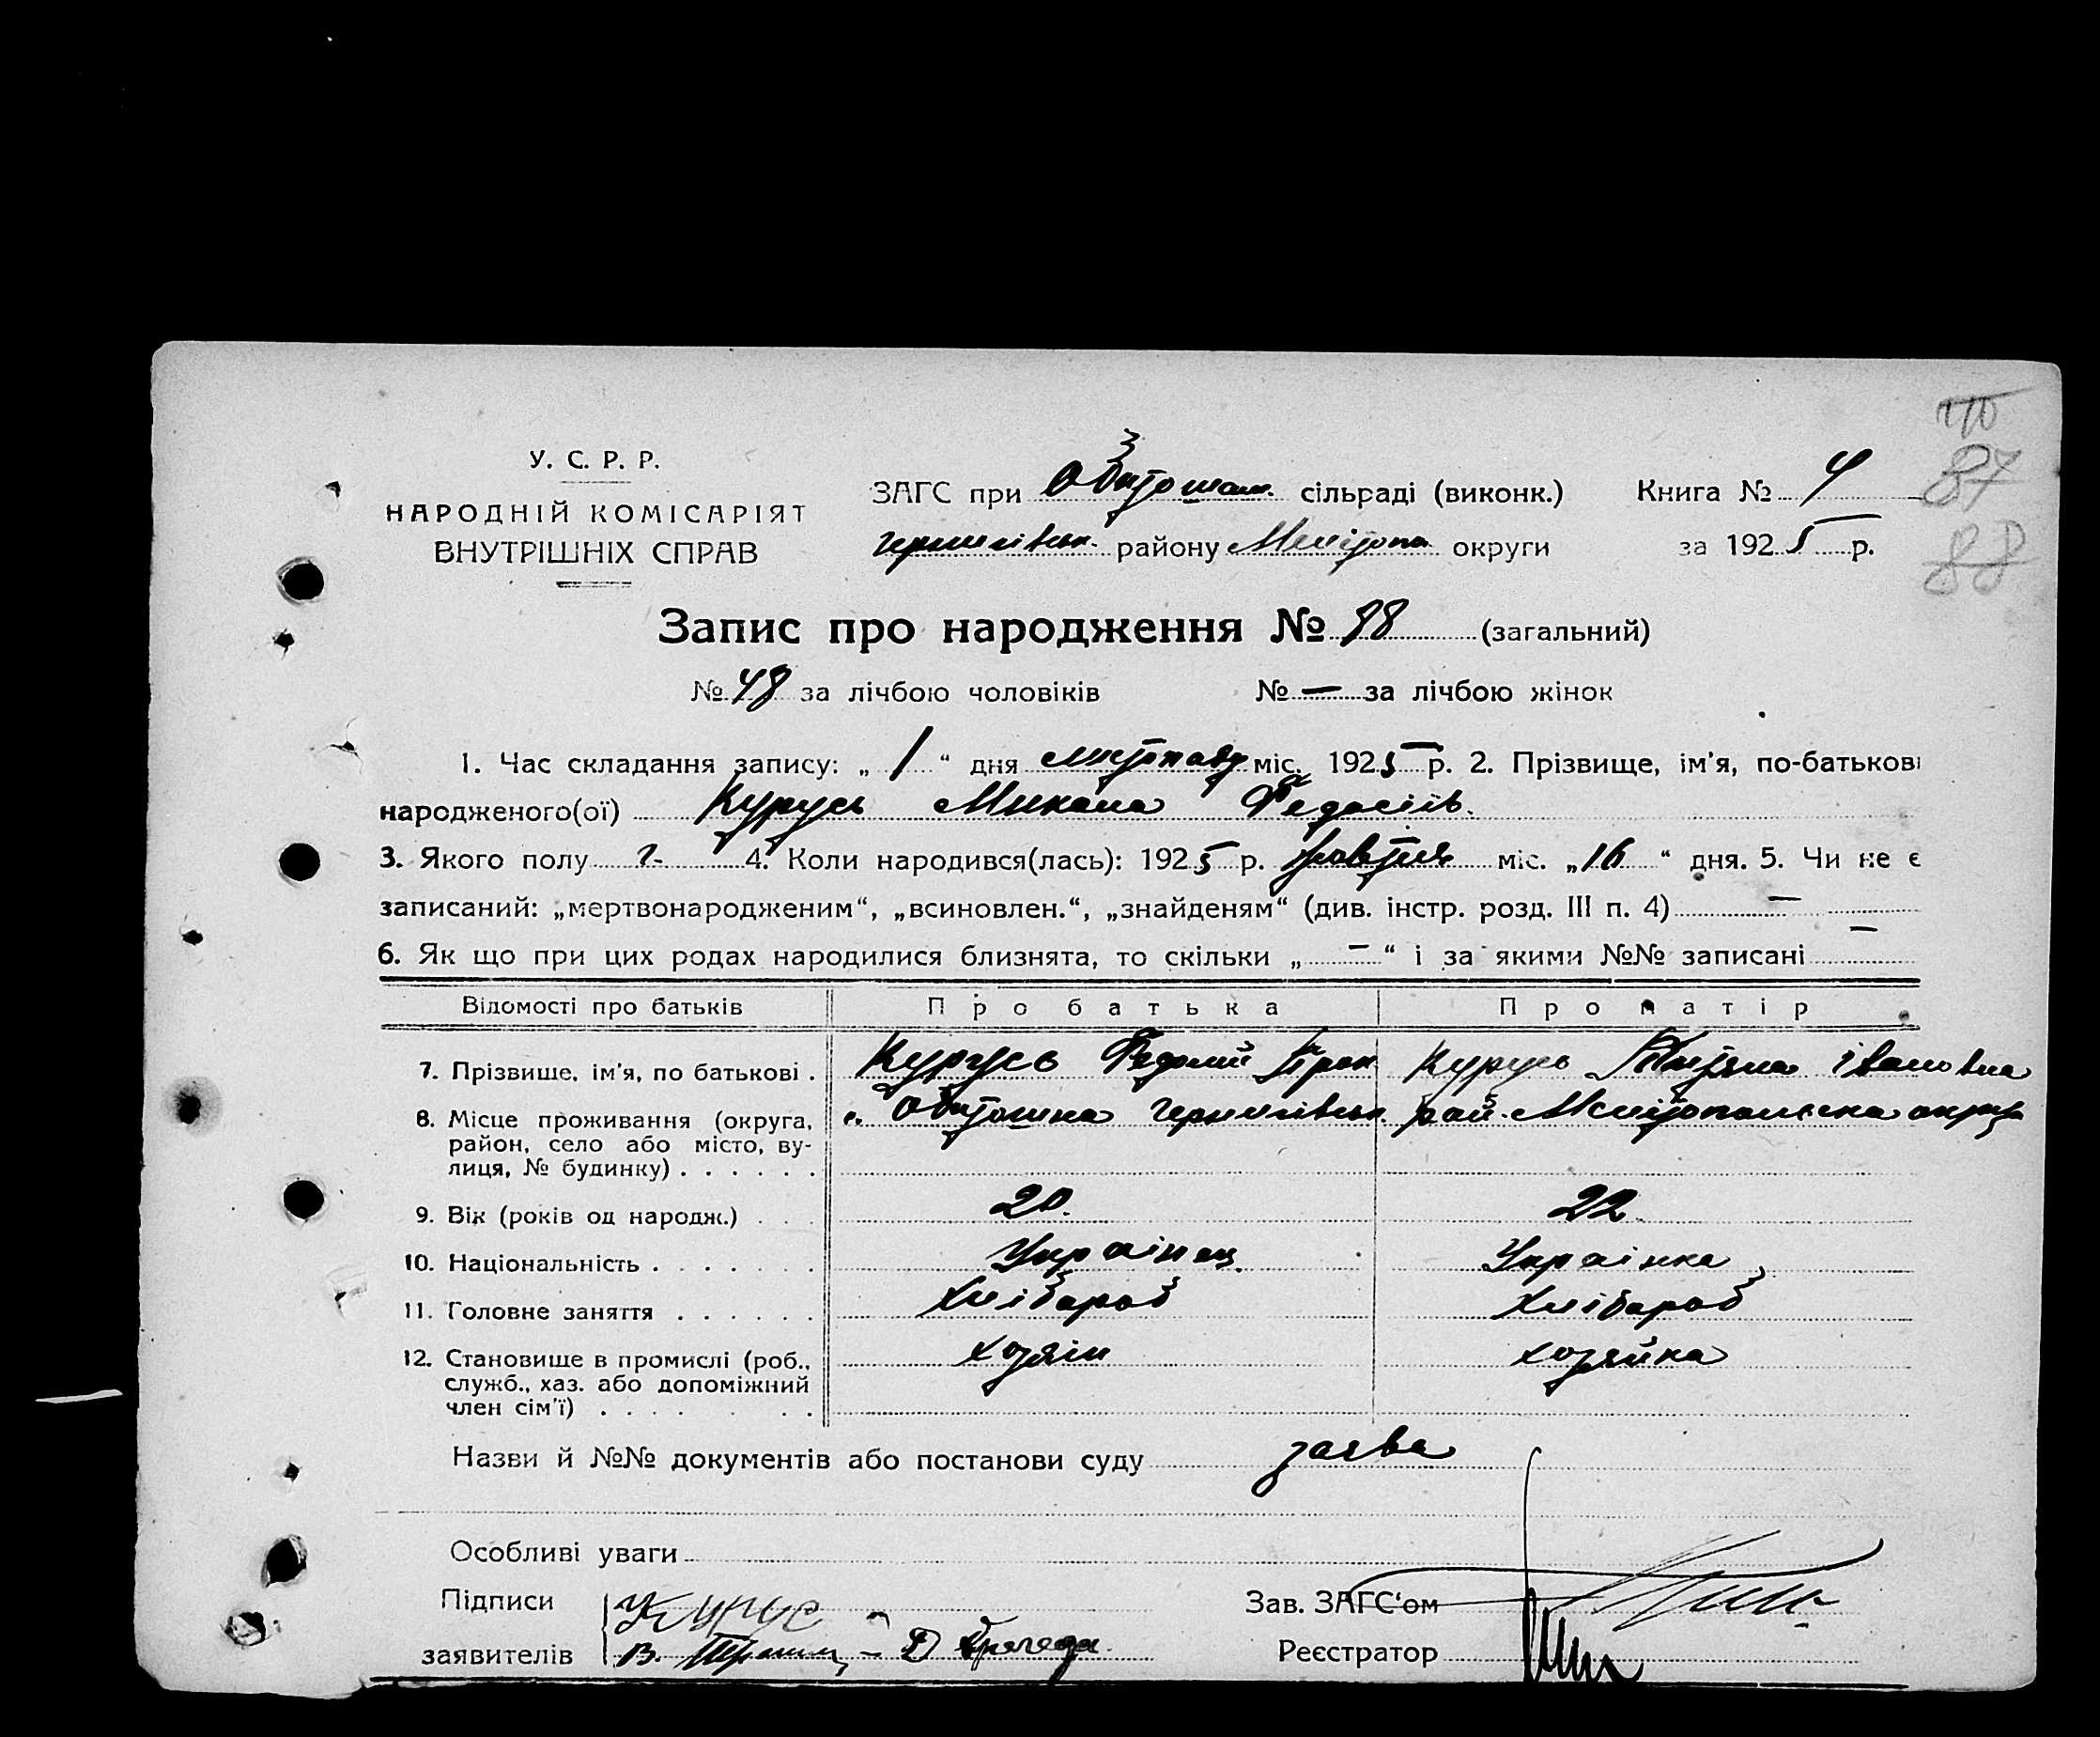 170
87
88
У. С. Р. Р.
НАРОДНІЙ КОМІСАРІЯТ
ВНУТРІШНІХ СПРАВ
ЗАГС при Обиточан. сільраді (виконк.) Книга № 4
Чернигівськ. району Мелітопа округи за 1925 р.
Запис про народження № 98 (загальний)
№ 48 за лічбою чоловіків № — за лічбою жінок
1. Час складання запису: „ 1 “ дня листопаду міс. 1925 р. 2. Прізвище, ім'я, по-батькові
народженого(ої) Курусь Микола Федосіїв.
3. Якого полу ч. 4. Коли народився(лась): 1925 р. жовтня міс. „16“ дня. 5. Чи не є
записаний: „мертвонародженим“, „всиновлен.“, „знайденям“ (див. інстр. розд. III п. 4) —
6. Як що при цих родах народилися близнята, то скільки „ — “ і за якими №№ записані —
Відомості про батьків Про батька Про матір
7. Прізвище, ім'я, по батькові . Курусь Федосій Прок Курусь Титяна Івановна
8. Місце проживання (округа, с. Обиточна Чернигівськ. рай. Мелітопольска округа
район, село або місто, ву-
лиця, № будинку) . . . . . .
9. Вік (років од народж.) . . . 20. 22.
10. Національність . . . . . . . Українец. Українка
11. Головне заняття . . . . . . Хлібароб Хлібароб
12. Становище в промислі (роб., хозяін хозяйка
служб., хаз. або допоміжний
член сім'ї) . . . . . . .
Назви й №№ документів або постанови суду заява
Особливі уваги
Підписи Курус Зав. ЗАГС'ом
заявителів В. Реєстратор